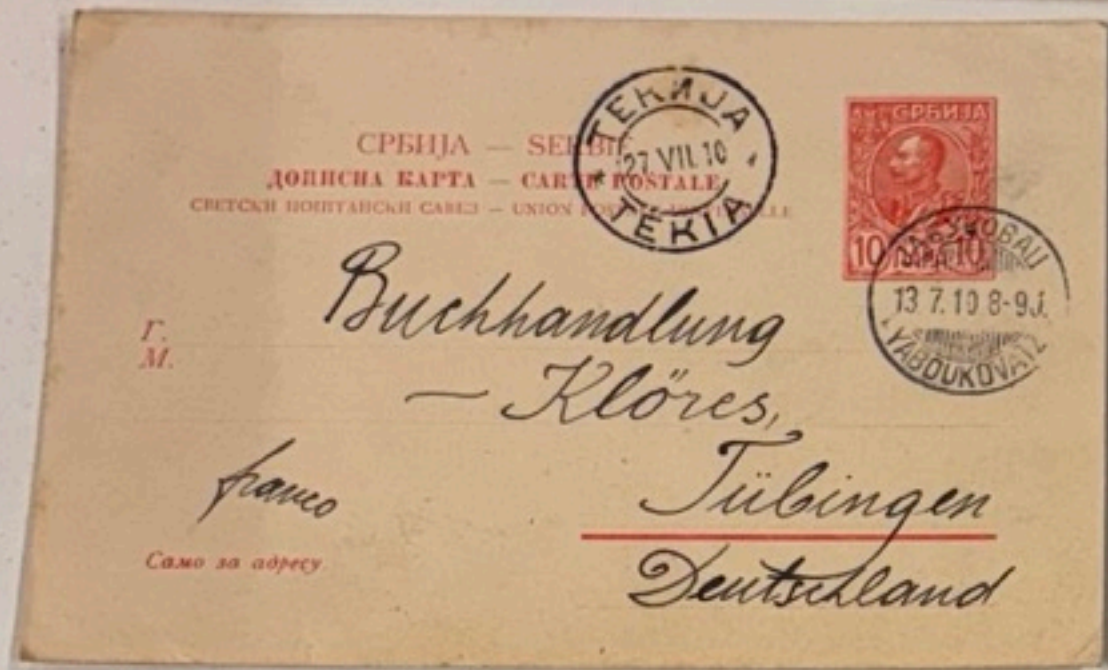 СРБИЈА — SERBIE
ДОПИСНА КАРТА — CARTE POSTALE
СВЕТСКИ ПОШТАНСКИ САВЕЗ — UNION POSTALE UNIVERSELLE
ТЕКИЈА
27 VII. 10
TEKIA
СРБИЈА
10 10
ЈАБУКОВАЦ
13 7. 10 8-9
YABOUKOVATZ
Г.
М.
Buchhandlung
— Klöres,
Tübingen
Deutschland
franco
Само за адресу